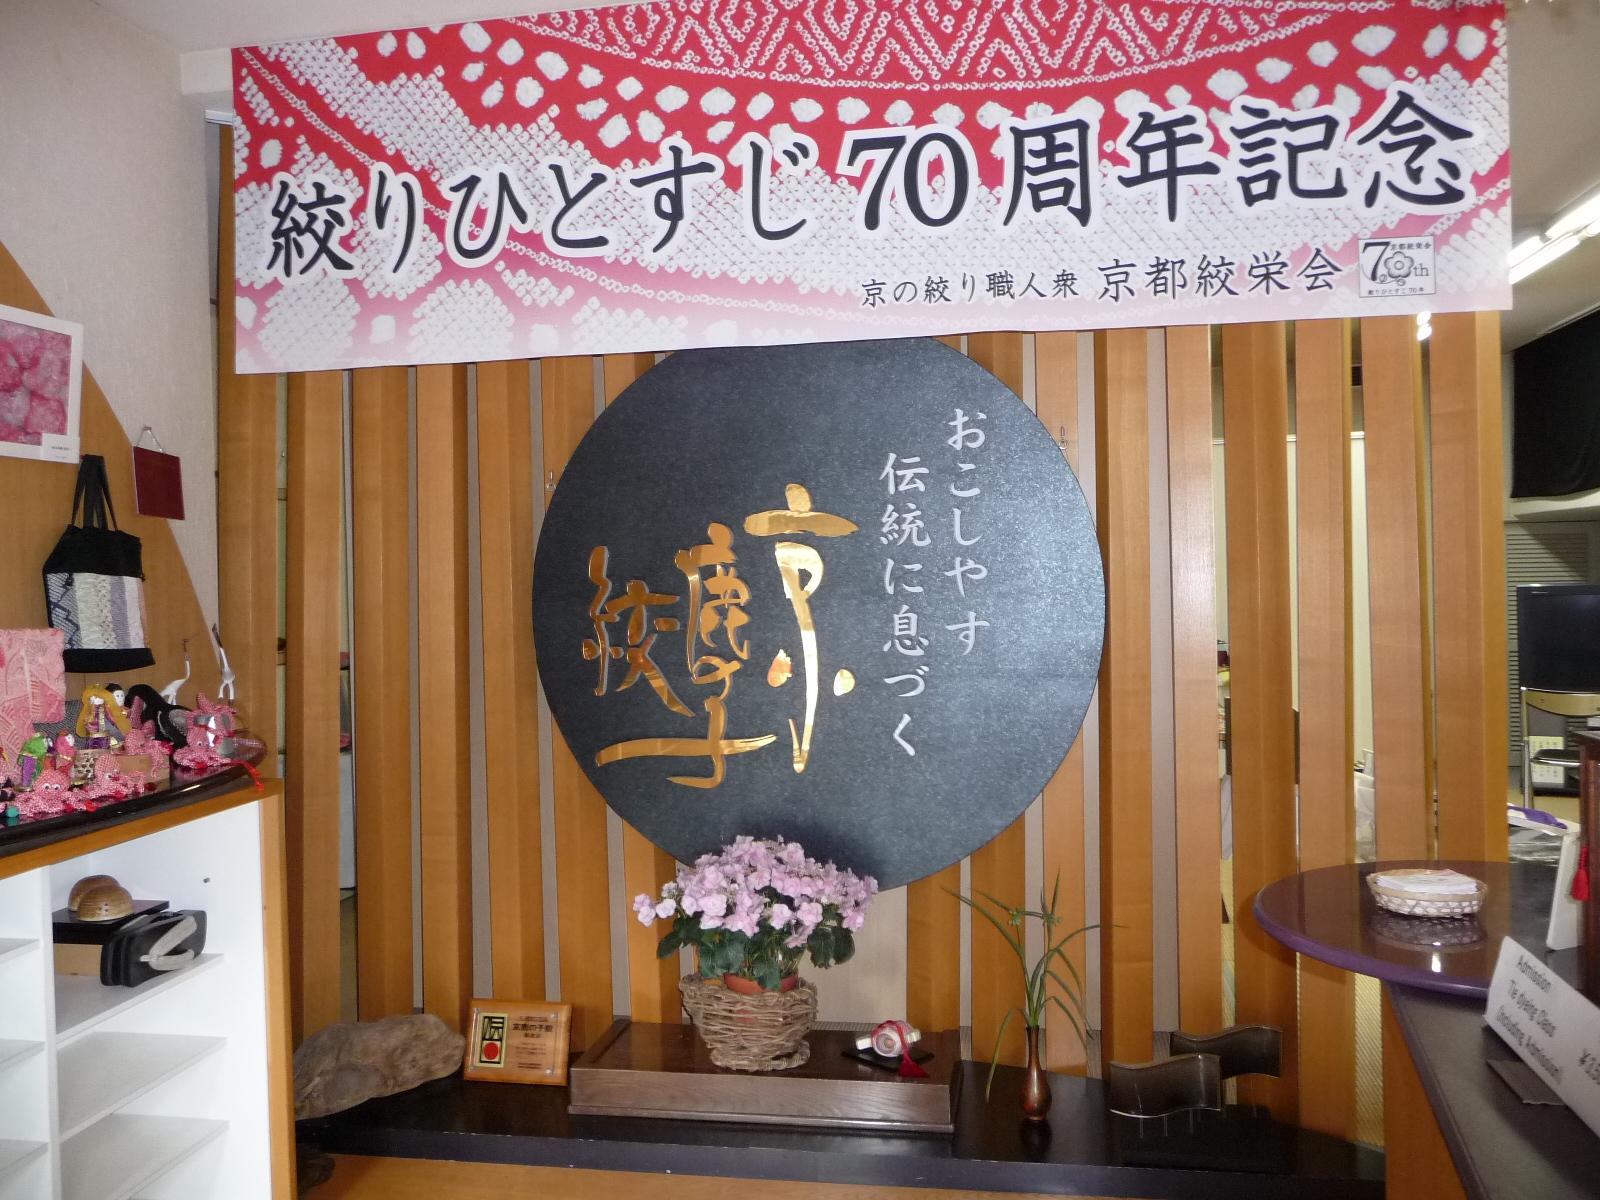 絞りひとすじ70周年記念
京の絞り職人衆 京都絞栄会
京都絞栄会
70th
絞りひとすじ70年
おこしやす
伝統に息づく
京
鹿の子
絞
伝
京鹿の子絞
Admission
Tie dyeing Class
(Including Admission)